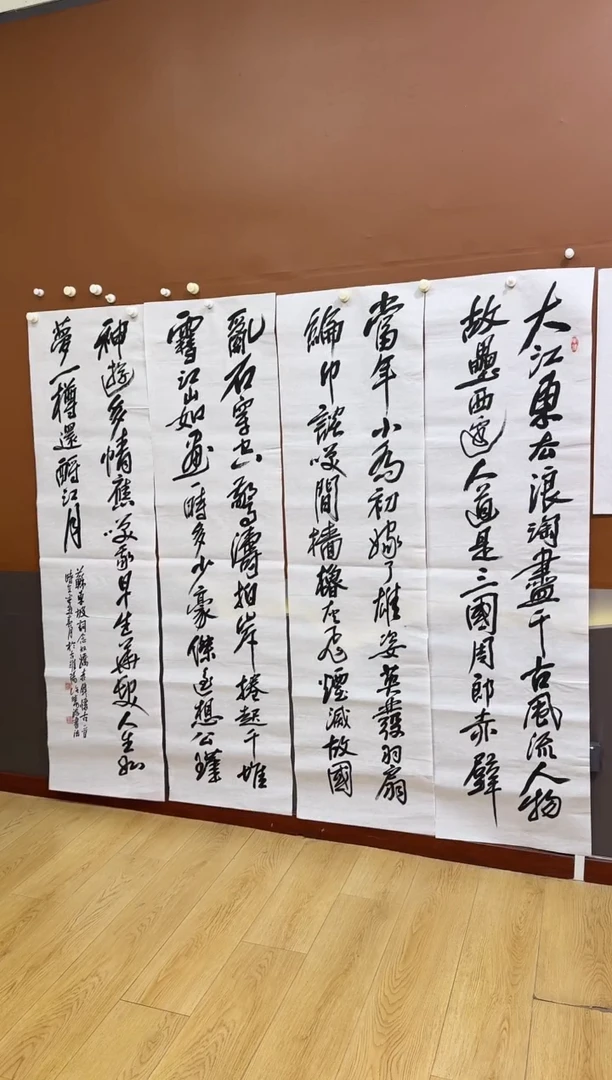 大江東去浪淘盡千古風流人物
故壘西邊人道是三國周郎赤壁
當年小喬初嫁了雄姿英發羽扇
綸巾談笑間檣櫓灰飛煙滅故國
亂石穿空驚濤拍岸捲起千堆
雪江山如畫一時多少豪傑遙想公瑾
神遊多情應笑我早生華髮人生如
夢一樽還酹江月
蘇東坡詞念奴嬌赤壁懷古一首